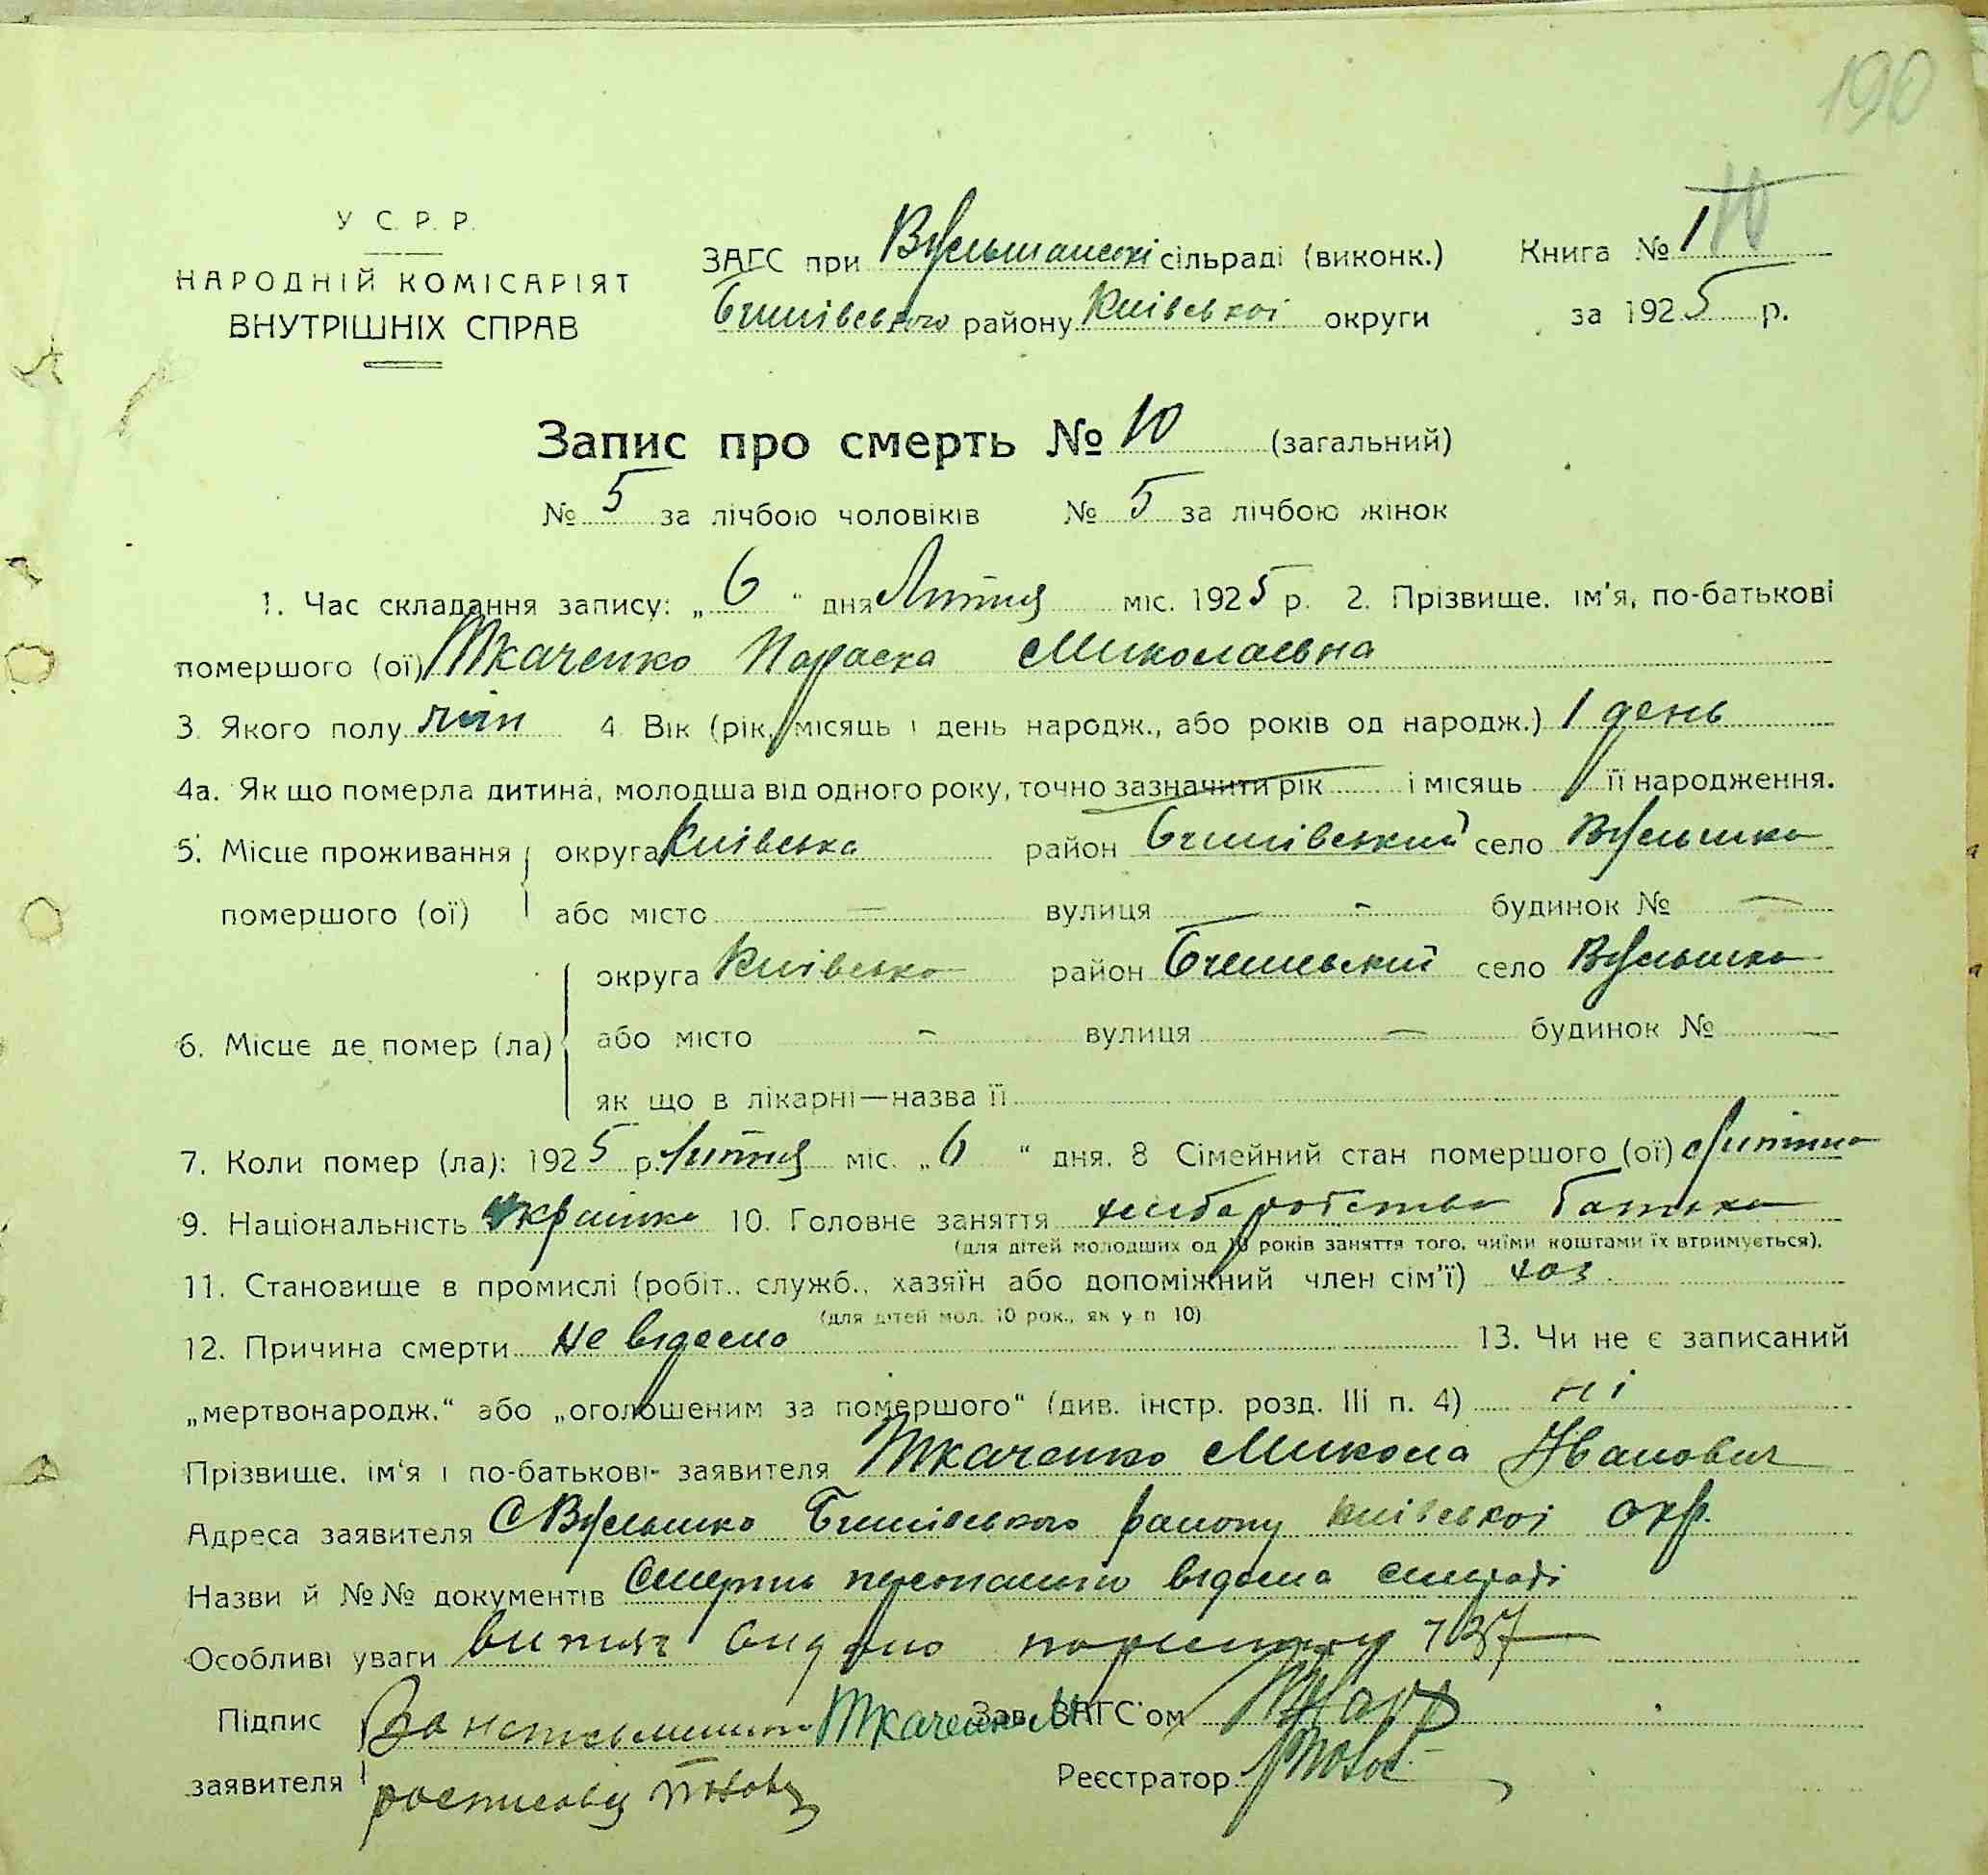 190
У С. Р. Р.
НАРОДНІЙ КОМІСАРІЯТ
ВНУТРІШНІХ СПРАВ
ЗАГС при сільраді (виконк.) Книга № 1
району Київської округи за 1925 р.
Запис про смерть № 10 (загальний)
№ 5 за лічбою чоловіків № 5 за лічбою жінок
1. Час складання запису: „ 6 “ дня Лютня міс. 1925 р. 2. Прізвище, ім'я, по-батькові
помершого (ої) Ткаченко Параска Миколаевна
3. Якого полу жін 4. Вік (рік, місяць і день народж., або років од народж.) 1 день
4а. Як що померла дитина, молодша від одного року, точно зазначити рік і місяць її народження.
5. Місце проживання округа Київська район село
помершого (ої) або місто – вулиця – будинок № –
округа Київська район село
6. Місце де помер (ла) або місто – вулиця – будинок № –
як що в лікарні—назва її
7. Коли помер (ла): 1925 р. Лютня міс. „ 6 “ дня. 8 Сімейний стан помершого (ої)
9. Національність Українка 10. Головне заняття хліборобство батька
(для дітей молодших од 10 років заняття того, чиїми коштами їх втримується).
11. Становище в промислі (робіт., служб., хазяїн або допоміжний член сім'ї) хаз.
(для дітей мол. 10 рок., як у п 10)
12. Причина смерти Не відомо 13. Чи не є записаний
„мертвонародж.“ або „оголошеним за помершого“ (див. інстр. розд. III п. 4) ні
Прізвище, ім'я і по-батькові заявителя Ткаченко Микола Іванович
Адреса заявителя С району Київської окр.
Назви й №№ документів Смерть персонально відома сільраді
Особливі уваги витяг видано
Підпис Ткаченко М Зав. ЗАГС'ом
заявителя Реєстратор